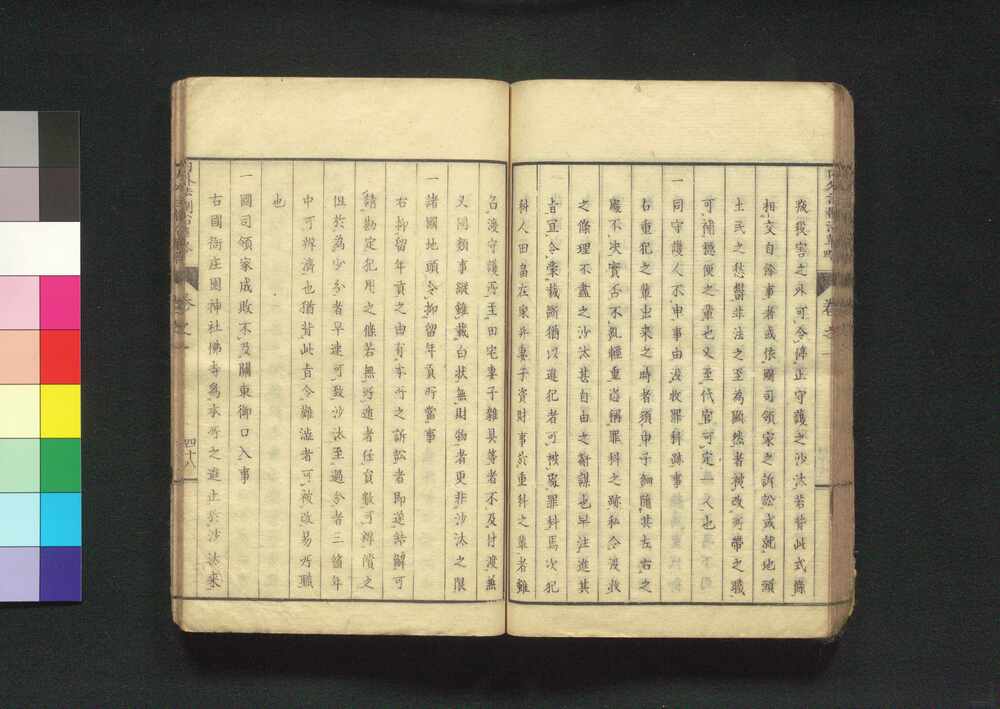 殺殺害之外可令停止守護之沙汰若背此式條
相交自餘事者或依國司領家之訴訟或就地頭
土民之愁鬱非法之至為顯然者被改所帶之職
可補穩便之輩也又至代官可定一人也
一 同守護人不申事由沒收罪科跡事
右重犯之輩出來之時者須申子細隨其左右之
處不決實否不糺輕重恣稱罪科之跡私令沒收
之條理不盡之沙汰甚自由之謀也早注進其
旨宜令蒙裁斷猶以違犯者可被處罪科焉次犯
科人田畠在家并妻子資財事於重科之輩者雖
召渡守護所至田宅妻子雜具等者不及付渡兼
又同類事縱雖載白狀無財物者更非沙汰之限
一 諸國地頭令抑留年貢所當事
右抑留年貢之由有本所之訴訟者即遂結解可
請勘定犯用之條若無所遁者任員數可辨償之
但於為少分者早速可致沙汰至過分者三箇年
中可辨濟也猶背此旨令難澁者可被改易所職
也
一 國司領家成敗不及關東御口入事
右國衙庄園神社佛寺為本所之進止於沙汰來
卷之一
四十八